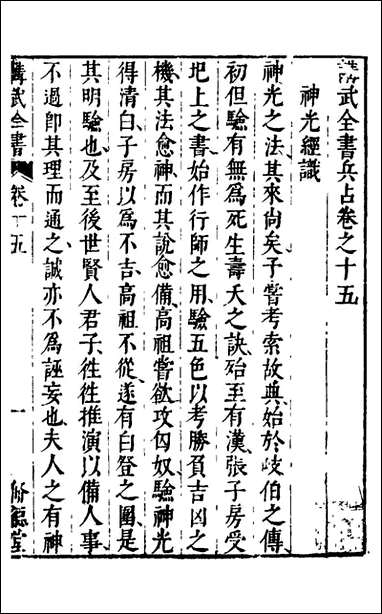 講武全書兵占卷之十五
神光經識
神光之法其來尚矣予嘗考索故典始於岐伯之傳
初但驗有無爲死生壽夭之訣殆至有漢張子房受
圯上之書始作行師之用驗五色以考勝負吉凶之
機其法愈神而其說愈備高祖嘗欲攻匈奴驗神光
得清白子房以爲不吉高祖不從遂有白登之圍是
其明驗也及至後世賢人君子徃徃推演以備人事
不過卽其理而通之誠亦不爲誣妄也夫人之有神
講武全書 卷十五 一 脩德堂